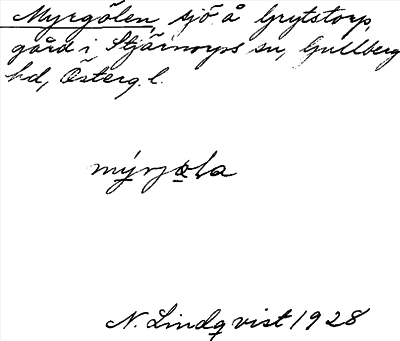 Myrgölen, sjö å Grytstorp,
gård i Stjärnorps sn, Gullberg
hd, Österg. l.
mýrjọla
N. Lindqvist 1928